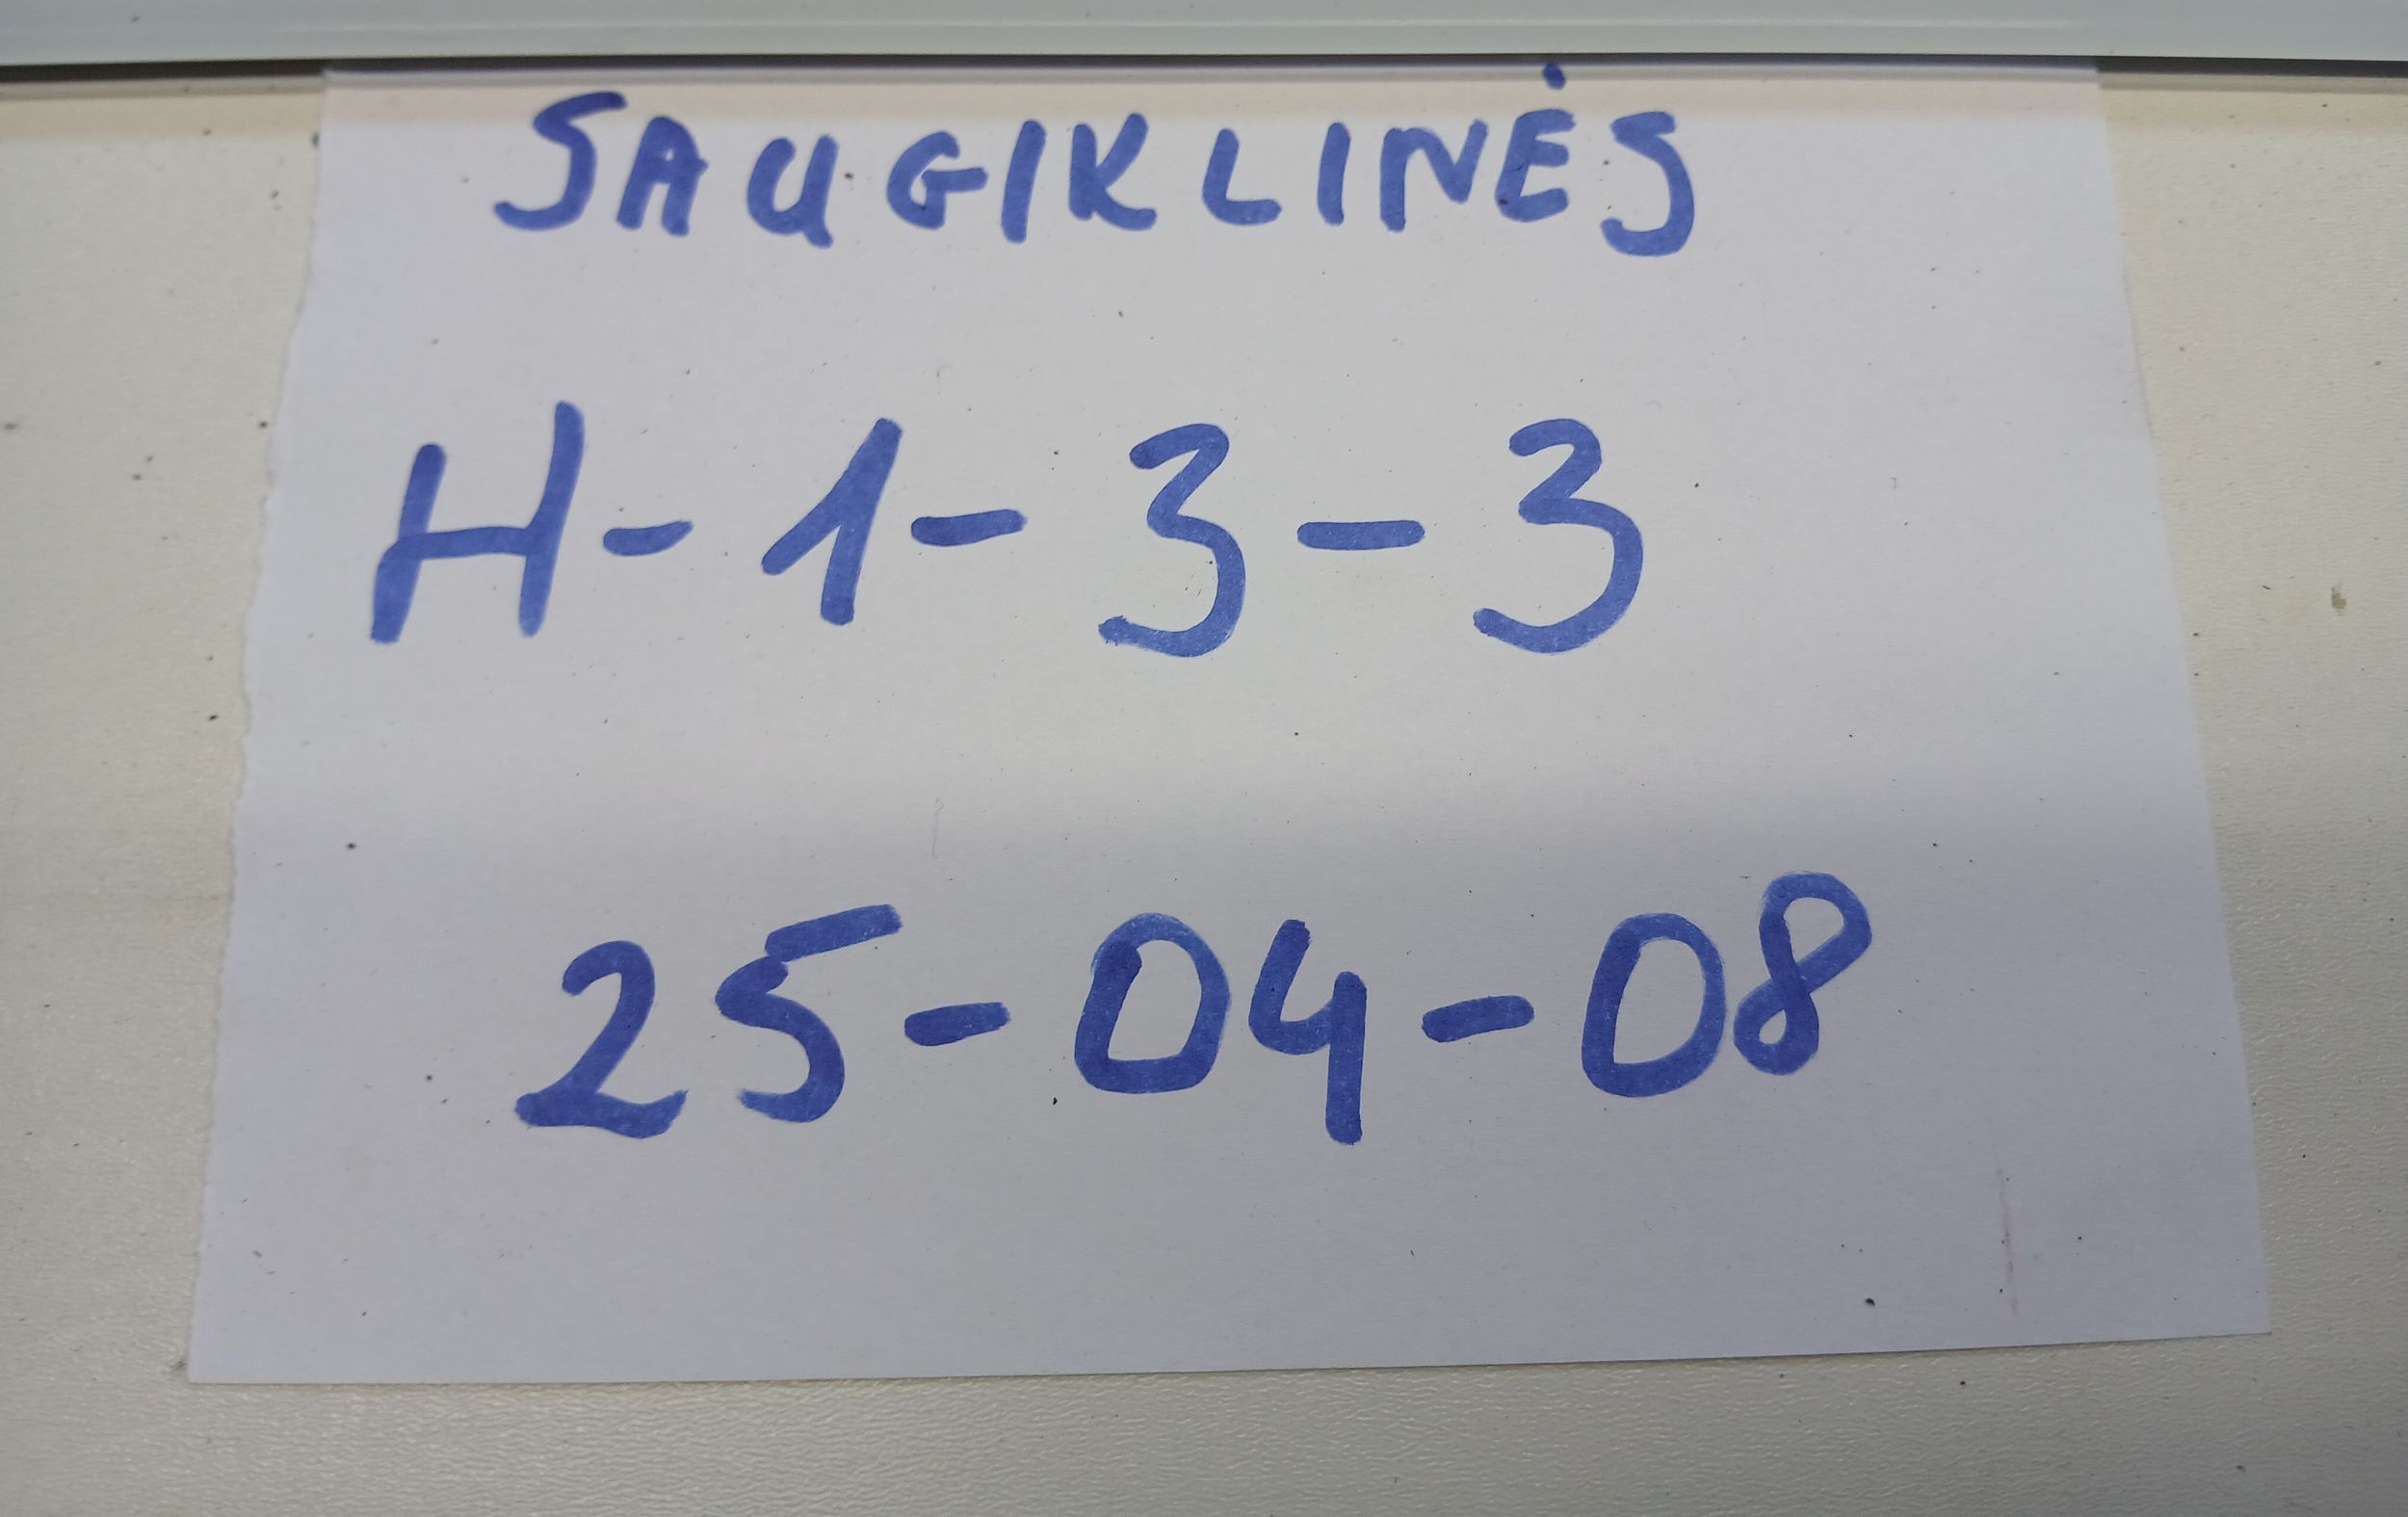 SAUGIKLINĖS
H-1-3-3
25-04-08